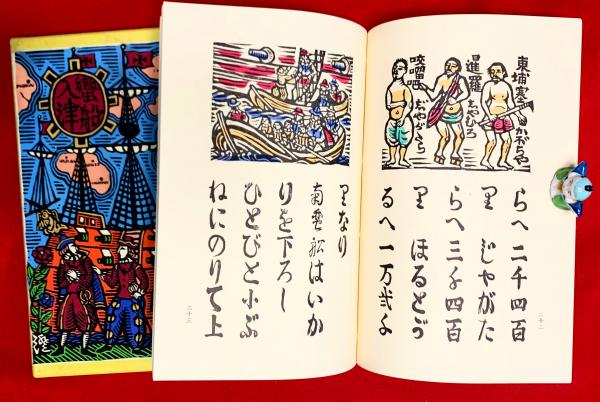 蠻船
入津
東埔寨
かぼちや
暹羅
しやむろ
じやがたら
らへ二千四百
里 じやがた
らへ三千四百
里 ほるとが
るへ一万弐千
二十二
里なり
南蛮船はいか
りを下ろし
ひとびと小ぶ
ねにのりて上
二十三